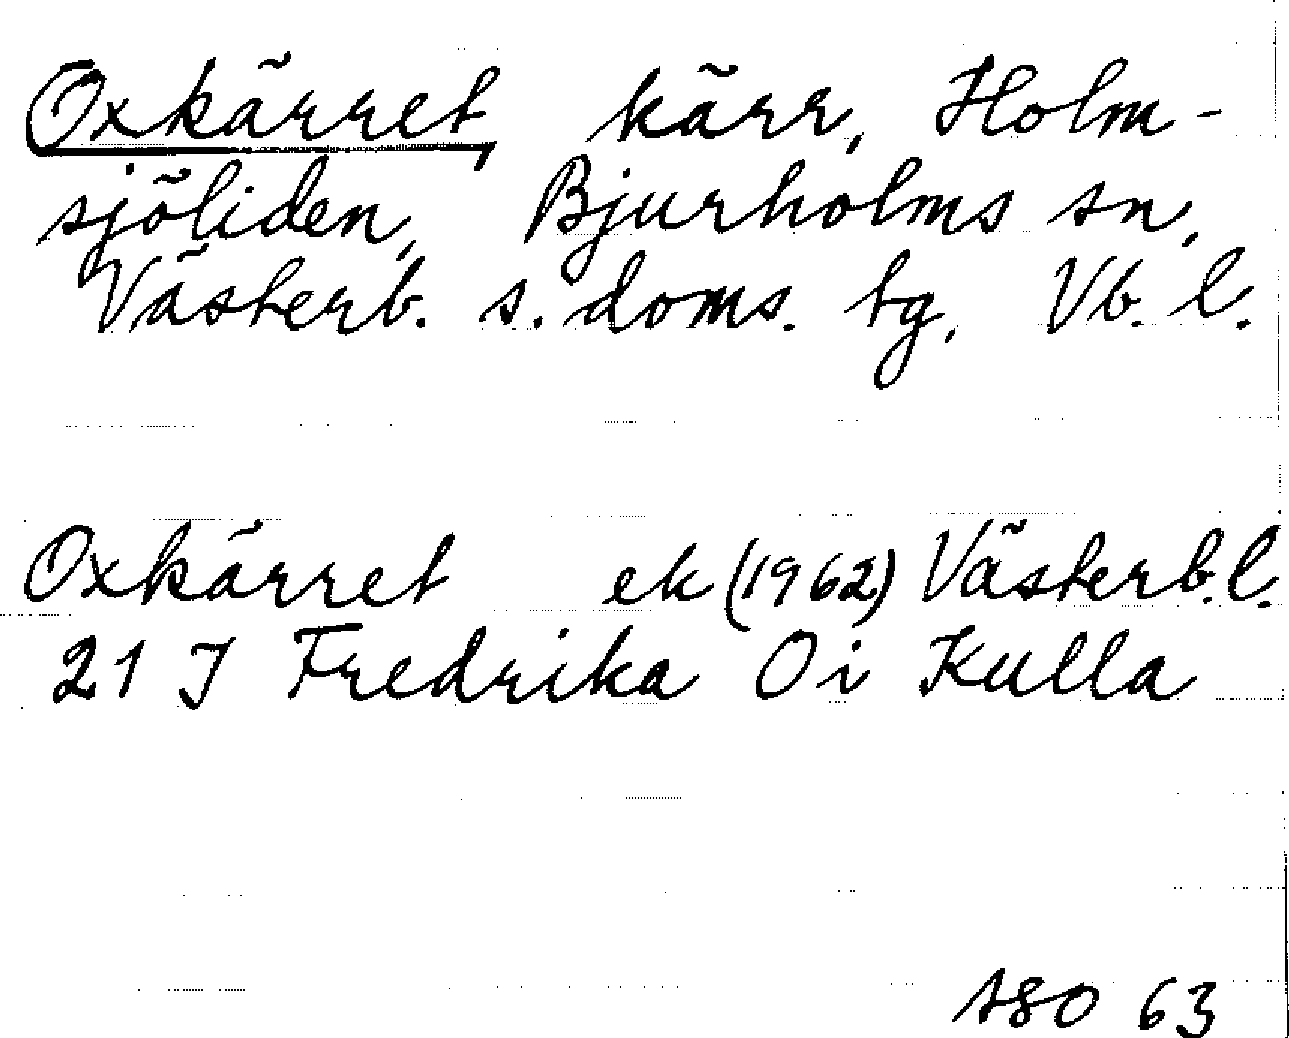 Oxkärret, kärr, Holm-
sjöliden, Bjurholms sn,
Västerb. s. doms. tg, Vb. l.
Oxkärret ek (1962) Västerb. l.
21 J Fredrika Oi Kulla
ASO 63